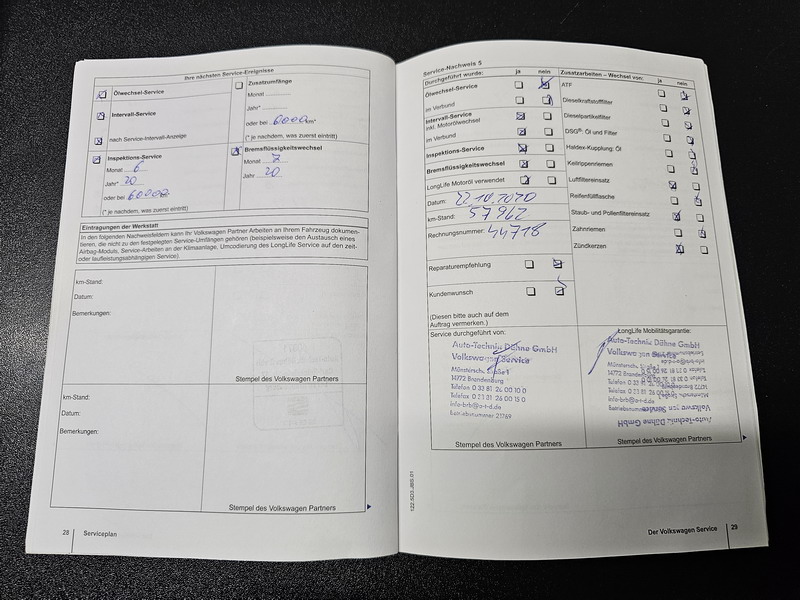 Ihre nächsten Service-Ereignisse
Ölwechsel-Service
Intervall-Service
nach Service-Intervall-Anzeige
Inspektions-Service
Monat 6
Jahr* 20
oder bei 60000
(* je nachdem, was zuerst eintritt)
Zusatzumfänge
Monat
Jahr*
oder bei 6000 km*
(* je nachdem, was zuerst eintritt)
Bremsflüssigkeitswechsel
Monat 7
Jahr 20
Eintragungen der Werkstatt
In den folgenden Nachweisfeldern kann Ihr Volkswagen Partner Arbeiten an Ihrem Fahrzeug dokumen-
tieren, die nicht zu den festgelegten Service-Umfängen gehören (beispielsweise den Austausch eines
Airbag-Moduls, Service-Arbeiten an der Klimaanlage, Umcodierung des LongLife Service auf den zeit-
oder laufleistungsabhängigen Service).
km-Stand:
Datum:
Bemerkungen:
Stempel des Volkswagen Partners
km-Stand:
Datum:
Bemerkungen:
Stempel des Volkswagen Partners
28 Serviceplan
Service-Nachweis 5
Durchgeführt wurde: ja nein
Ölwechsel-Service
im Verbund
Intervall-Service
inkl. Motorölwechsel
im Verbund
Inspektions-Service
Bremsflüssigkeitswechsel
LongLife Motoröl verwendet
Datum: 22.10.2020
km-Stand: 57962
Rechnungsnummer: 44718
Reparaturempfehlung
Kundenwunsch
(Diesen bitte auch auf dem
Auftrag vermerken.)
Zusatzarbeiten – Wechsel von: ja nein
ATF
Dieselkraftstofffilter
Dieselpartikelfilter
DSG®: Öl und Filter
Haldex-Kupplung: Öl
Keilrippenriemen
Luftfiltereinsatz
Reifenfüllflasche
Staub- und Pollenfiltereinsatz
Zahnriemen
Zündkerzen
Service durchgeführt von:
Auto-Technik Dähne GmbH
Volkswagen Service
Münstersch. Straße 1
14772 Brandenburg
Telefon 0 33 81 26 00 10 0
Telefax 0 33 81 26 00 15 0
info-brb@a-t-d.de
Betriebsnummer 21769
Stempel des Volkswagen Partners
LongLife Mobilitätsgarantie:
Auto-Technik Dähne GmbH
Volkswagen Service
14772 Brandenburg
Stempel des Volkswagen Partners
122.5Q3.JBS.01
Der Volkswagen Service 29